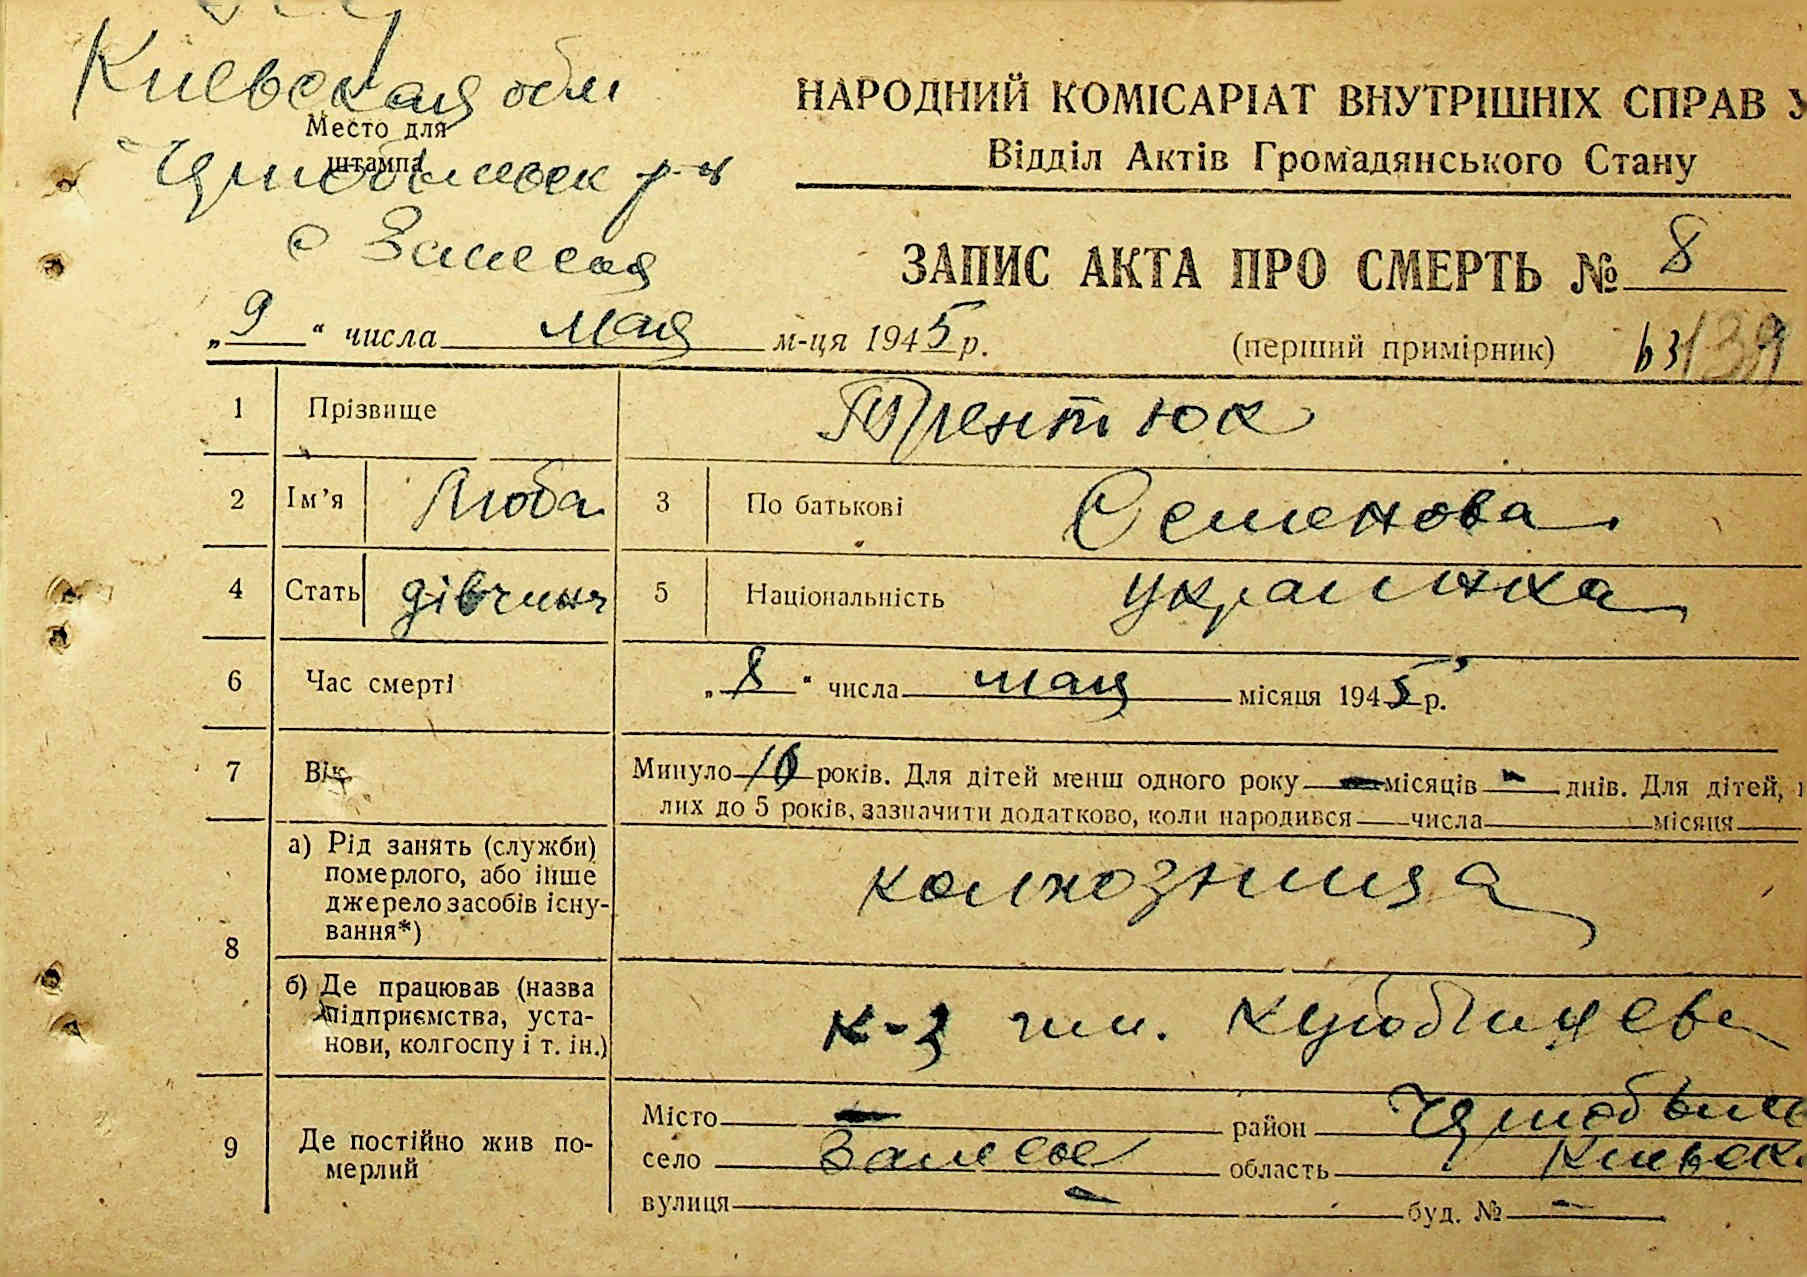 Киевская обл
Место для
штампа
Чернобыльск р-н
с Залесья
НАРОДНИЙ КОМІСАРІАТ ВНУТРІШНІХ СПРАВ У
Відділ Актів Громадянського Стану
ЗАПИС АКТА ПРО СМЕРТЬ № 8
„ 9 “ числа мая м-ця 1945 р.
(перший примірник) 139
1 Прізвище
2 Ім’я Люба 3 По батькові Семенова
4 Стать дівчина 5 Національність украинка
6 Час смерті „ 8 “ числа мая місяця 1945 р.
7 Вік Минуло 10 років. Для дітей менш одного року — місяців - днів. Для дітей,
лих до 5 років, зазначити додатково, коли народився числа місяця
8 а) Рід занять (служби)
померлого, або інше
джерело засобів існу-
вання*) колхозница
б) Де працював (назва
підприємства, уста-
нови, колгоспу і т. ін.) к-з им. Куйбышева
9 Де постійно жив по-
мерлий
Місто — район Чернобыль
село Залесье область Киевск.
вулиця - буд. № -